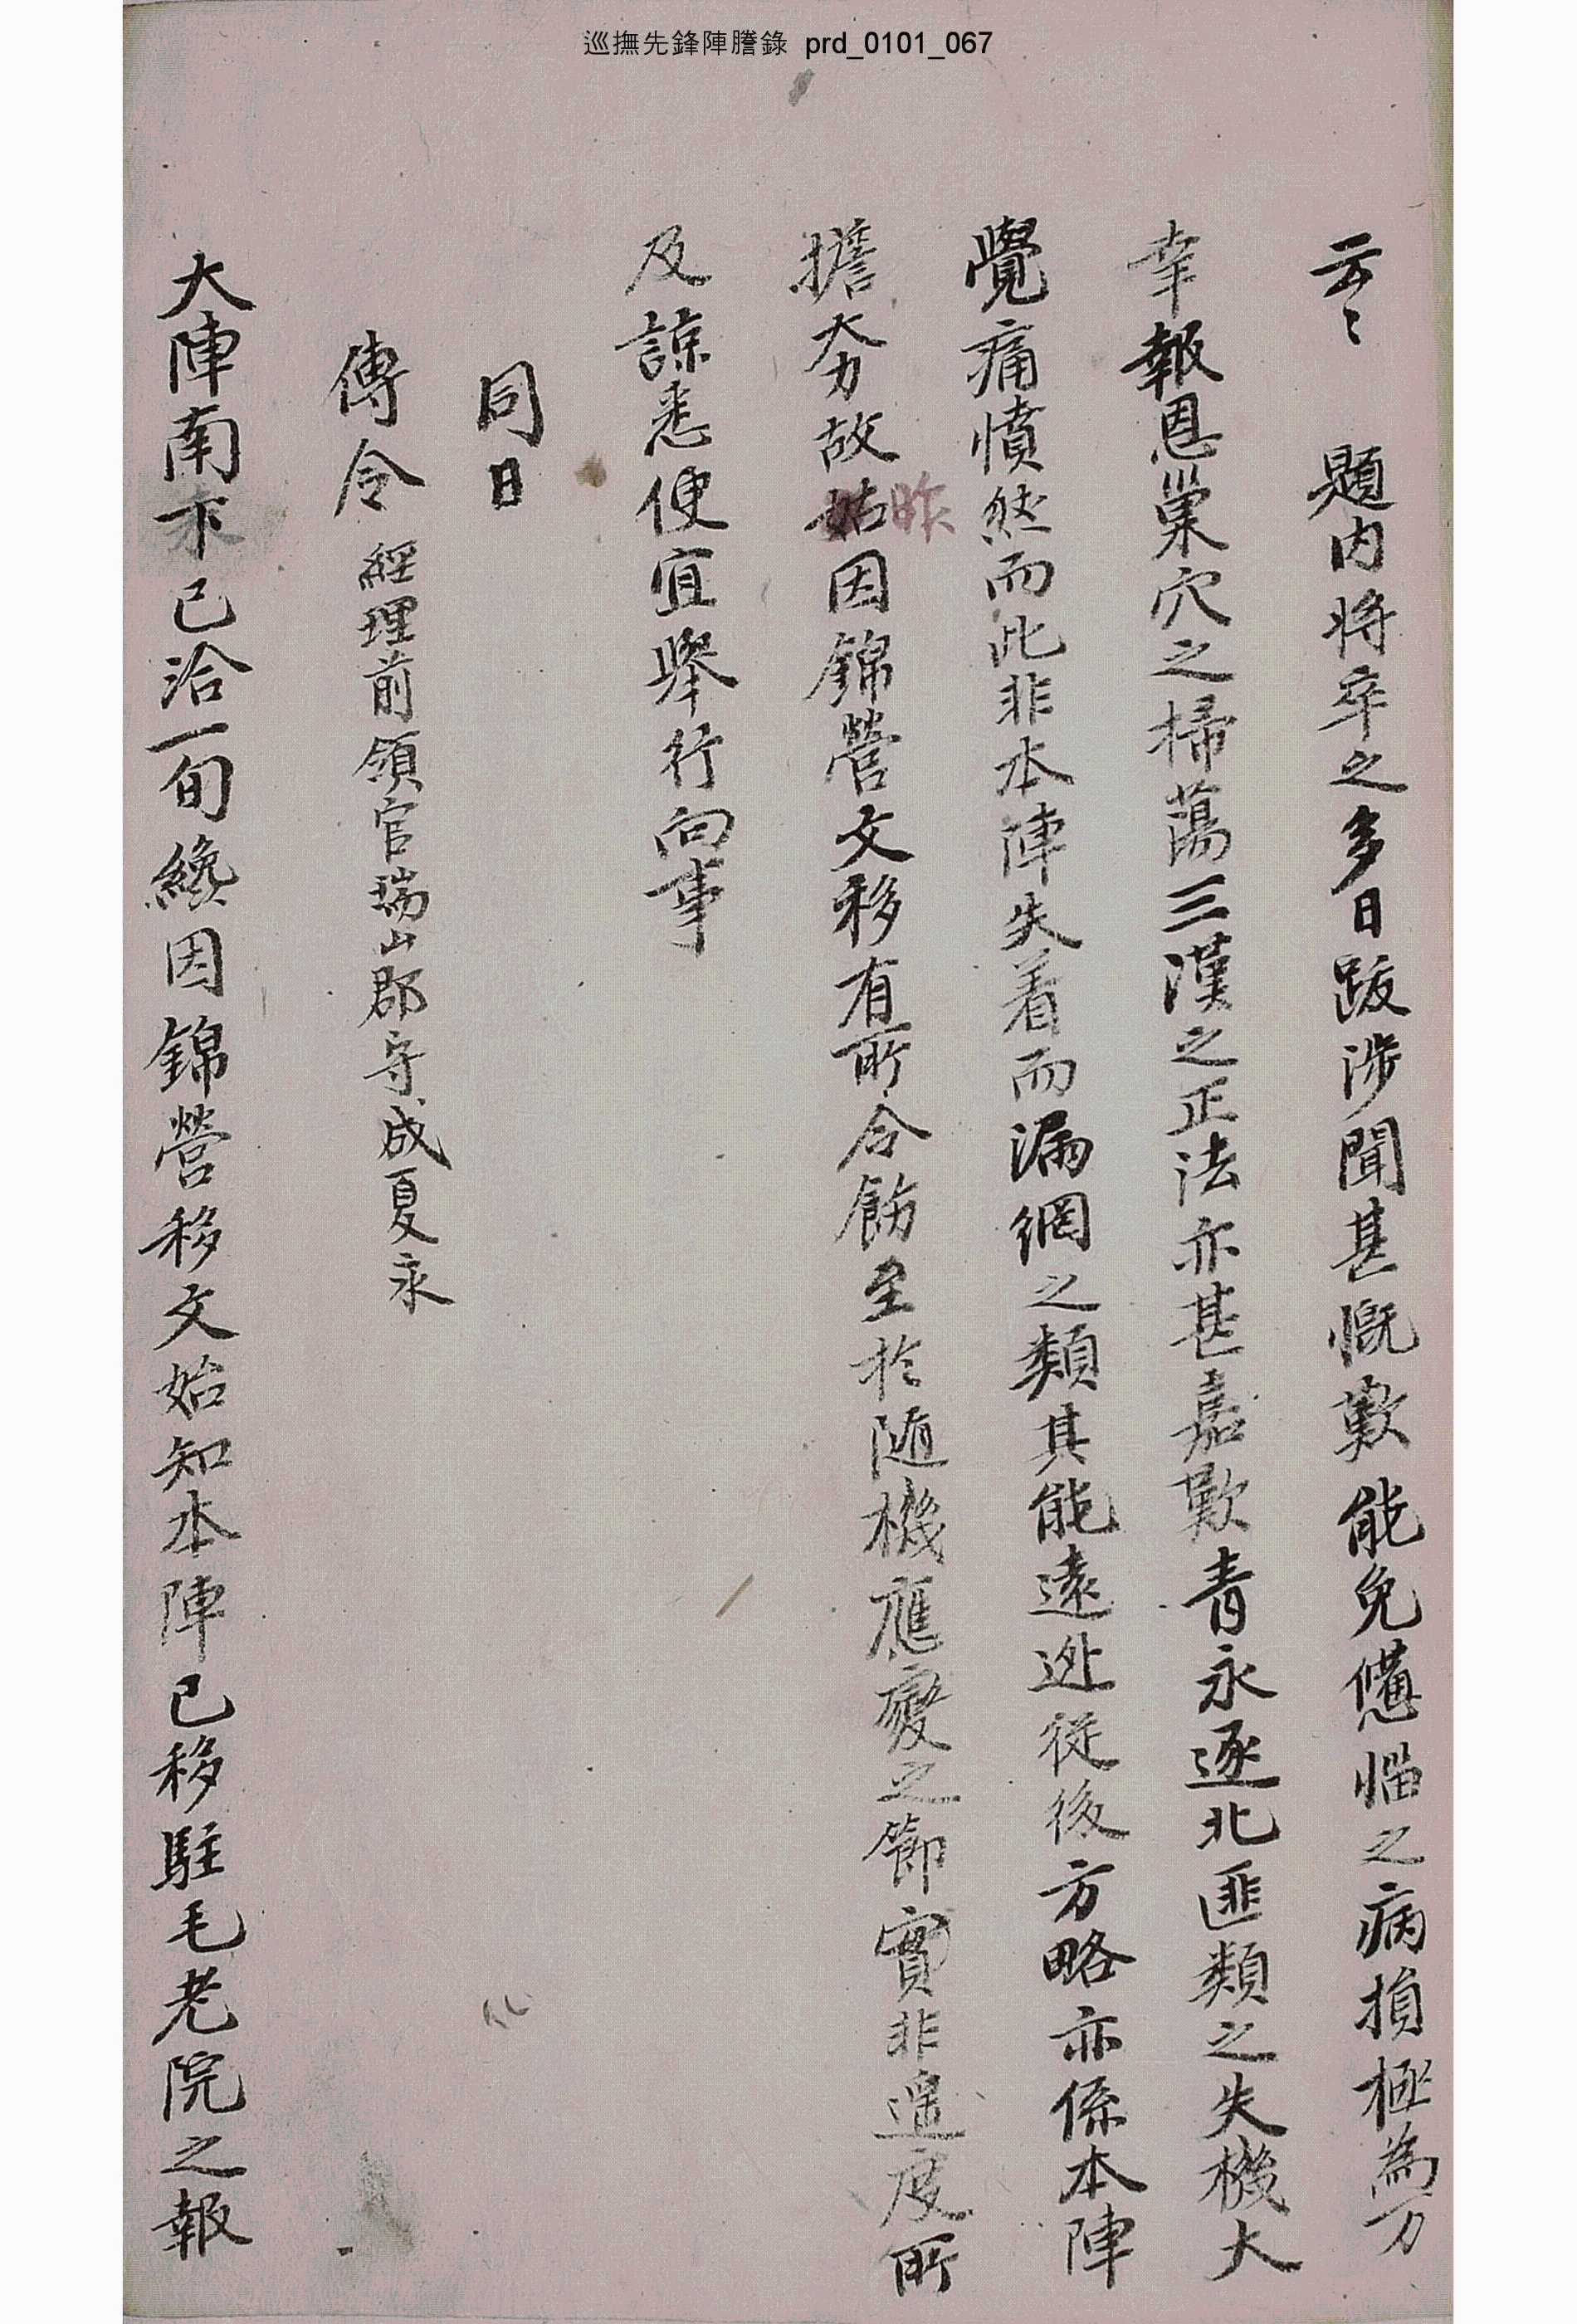 巡撫先鋒陣謄錄 prd_0101_067
云〻 題內將卒之多日跋涉聞甚慨歎能免憊惱之病損極爲万
幸報恩巢穴之掃蕩三漢之正法亦甚嘉歎靑永逐北匪類之失機大
覺痛憤然而此非本陣失着而漏網之類其能遠逃從後方略亦係本陣
擔夯故姑因錦營文移有所令飭至於随機應變之節實非遥度所
昨
及諒悉便宜擧行向事
同日
傳令 經理前領官瑞山郡守成夏永
大陣南下已洽一旬纔因錦營移文始知本陣已移駐毛老院之報